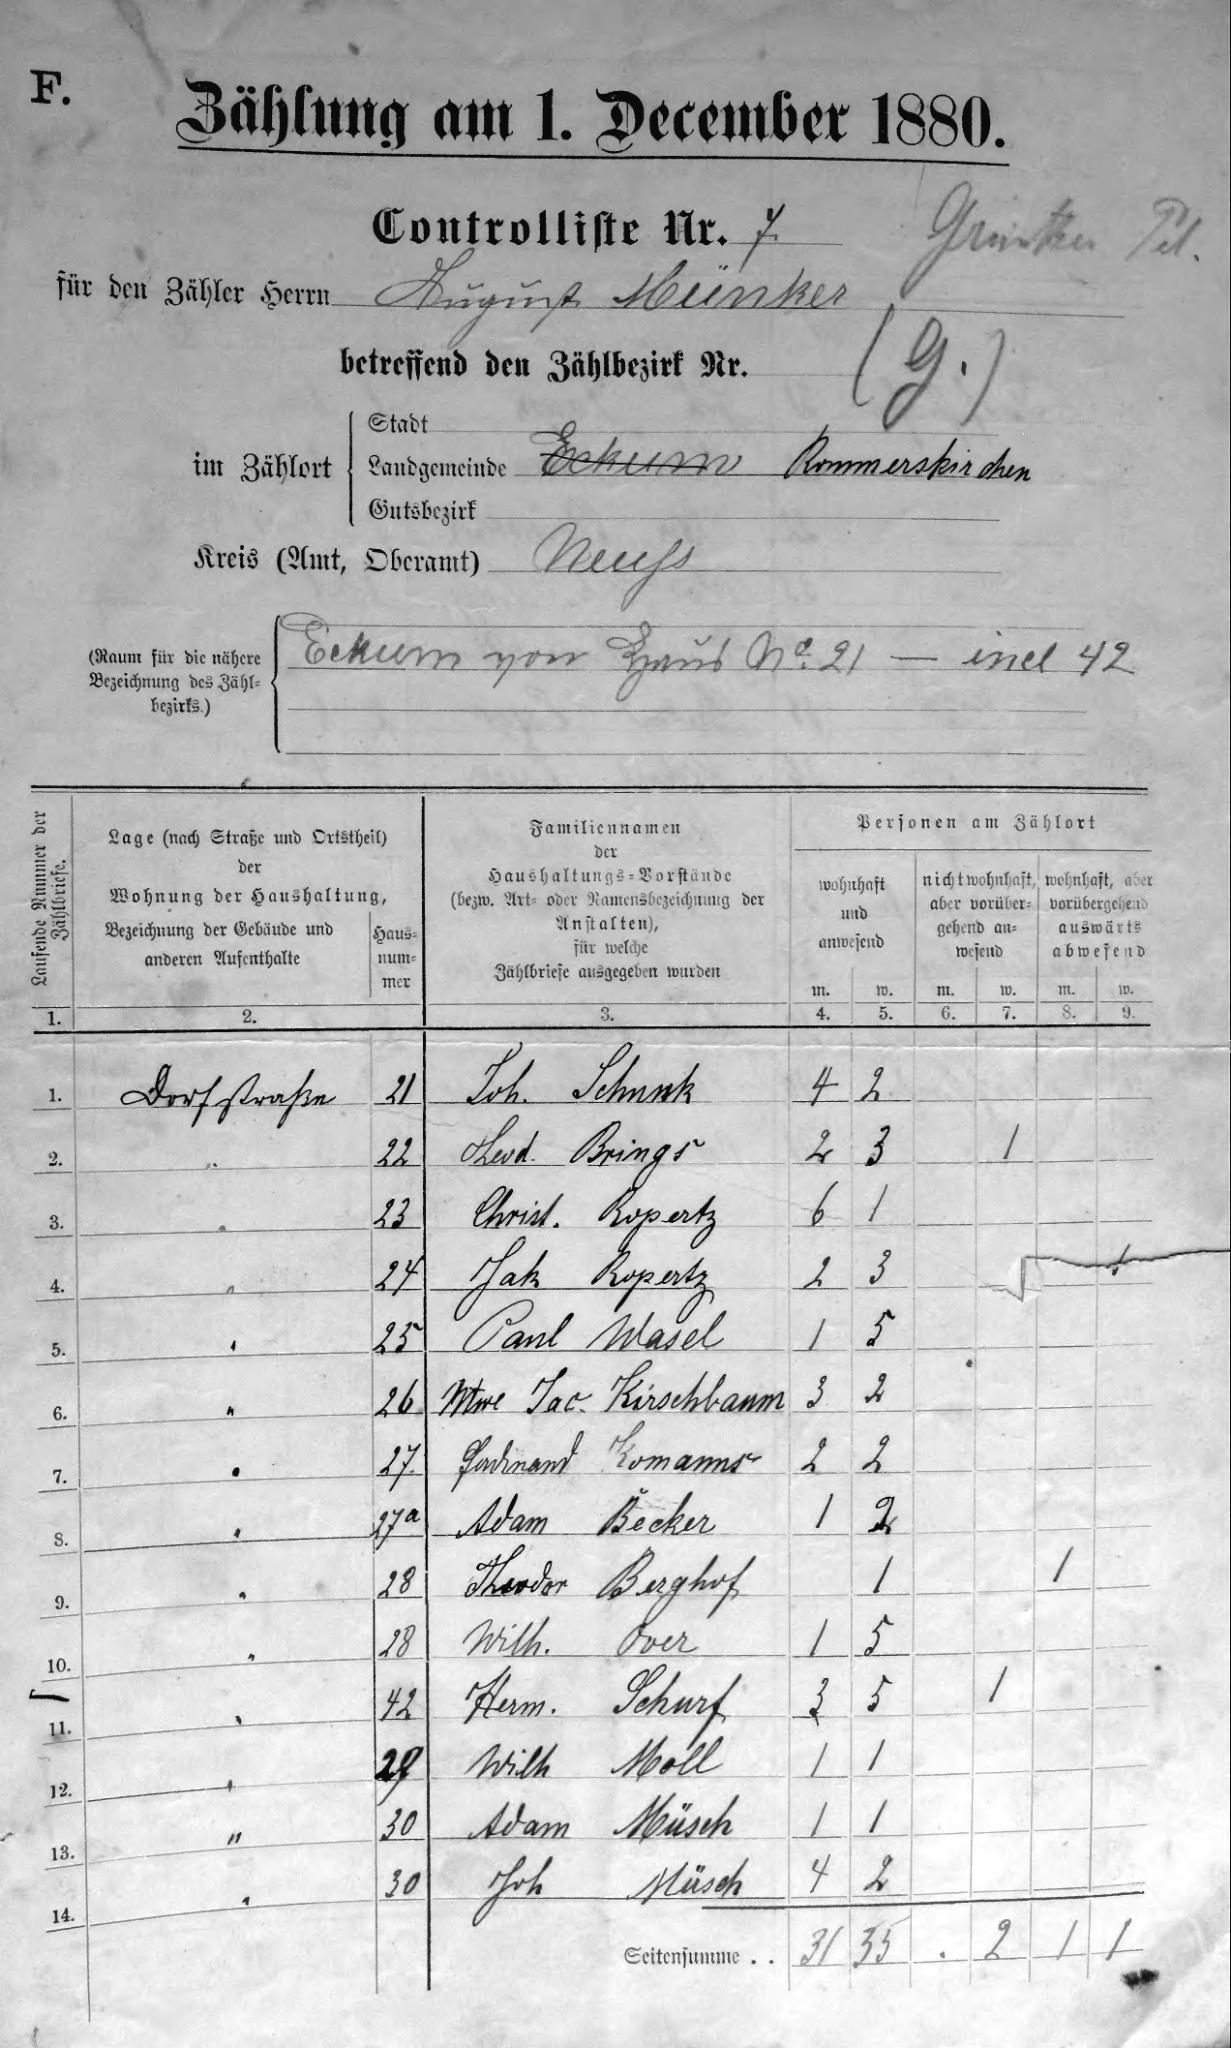 F.
Zählung am 1. December 1880.
Controlliste Nr. 7
für den Zähler Herrn August Münker
betreffend den Zählbezirk Nr. (G.)
Stadt
im Zählort Landgemeinde Eckum Rommerskirchen
Gutsbezirk
Kreis (Amt, Oberamt) Neuss
(Raum für die nähere Bezeichnung des Zähl-
bezirks.)
Eckum von Haus No. 21 — incl 42
Laufende Nummer der Zählbriefe.
Lage (nach Straße und Ortstheil)
der
Wohnung der Haushaltung,
Bezeichnung der Gebäude und
anderen Aufenthalte
Haus-
num-
mer
Familiennamen
der
Haushaltungs-Vorstände
(bezw. Art- oder Namensbezeichnung der
Anstalten),
für welche
Zählbriefe ausgegeben wurden
Personen am Zählort
wohnhaft
und
anwesend
nicht wohnhaft,
aber vorüber-
gehend an-
wesend
wohnhaft, aber
vorübergehend
auswärts
abwesend
m. w. m. w. m. w.
1. 2. 3. 4. 5. 6. 7. 8. 9.
1. Dorfstraße 21 Joh. Schunk 4 2
2. " 22 Theod. Brings 2 3 1
3. " 23 Christ. Ropertz 6 1
4. " 24 Jak Ropertz 2 3 1
5. " 25 Paul Wasel 1 5
6. " 26 Wwe Jac. Kirschbaum 3 2
7. " 27. Ferdinand Komanns 2 2
8. " 27a Adam Becker 1 2
9. " 28 Theodor Berghof 1 1
10. " 28 Wilh. Over 1 5
11. " 42 Herm. Schurf 3 5 1
12. " 29 Wilh Moll 1 1
13. " 30 Adam Müsch 1 1
14. " 30 Joh Müsch 4 2
Seitensumme . . 31 35 . 2 1 1